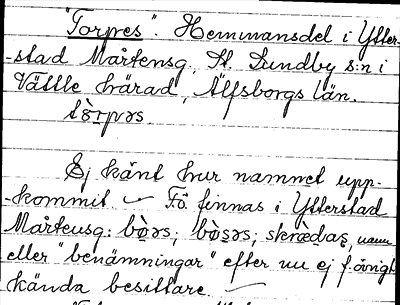 "Torpes". Hemmansdel i Ytter-
-stad Mårtensg., St. Lundby s:n i
Vättle härad, Älfsborgs län.
tòrpəs.
Ej känt hur namnet upp-
-kommit – Få finnas i Ytterstad
Mårtensg: bò̱əs; bò̱səs; skræ̀das, namn
eller "benämningar" efter nu ej f. övrigt
kända besittare. –